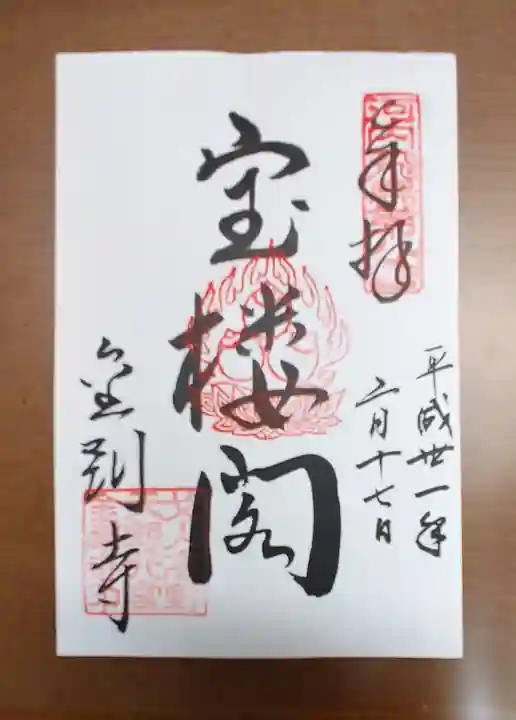 奉拝
平成卅一年
二月十七日
宝楼閣
金剛寺